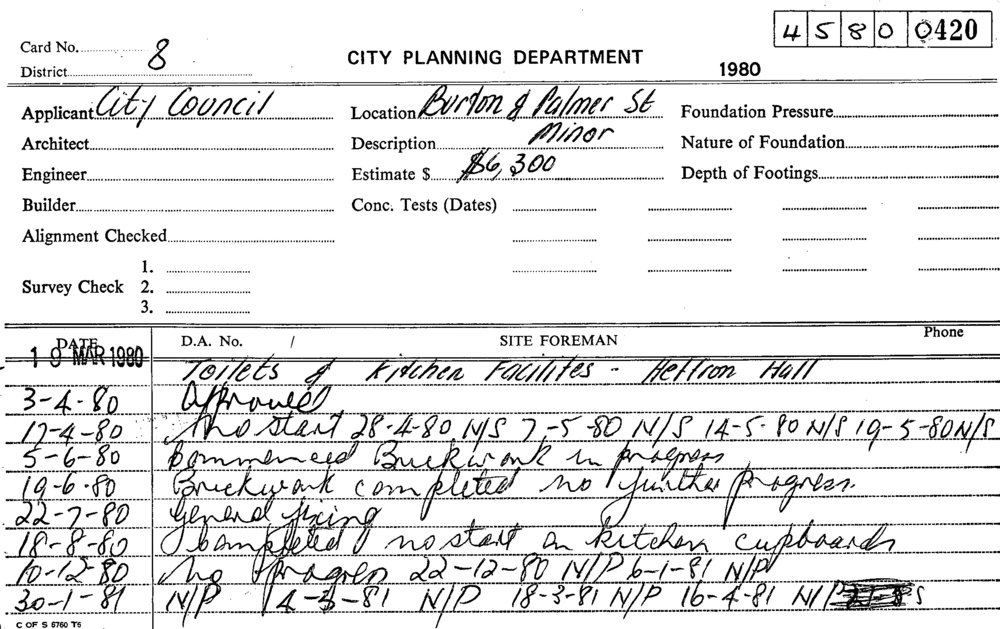 4580 0420
Card No. 8
CITY PLANNING DEPARTMENT
District
1980
Applicant City Council Location Burton & Palmer St Foundation Pressure
Architect Description Minor Nature of Foundation
Engineer Estimate $ $6,300 Depth of Footings
Builder Conc. Tests (Dates)
Alignment Checked
1.
Survey Check 2.
3.
DATE D.A. No. / SITE FOREMAN Phone
10 MAR 1980 Toilets & Kitchen Facilites - Heffron Hall
3-4-80 Approved
17-4-80 No start 28-4-80 N/S 7-5-80 N/S 14-5-80 N/S 19-5-80 N/S
5-6-80 Commenced Brickwork in progress
19-6-80 Brickwork completed no further progress.
22-7-80 General fixing
18-8-80 Completed no start on kitchen cupboards
10-12-80 No progress 22-12-80 N/P 6-1-81 N/P
30-1-81 N/P 4-3-81 N/P 18-3-81 N/P 16-4-81 N/P S
C OF S 6760 T5